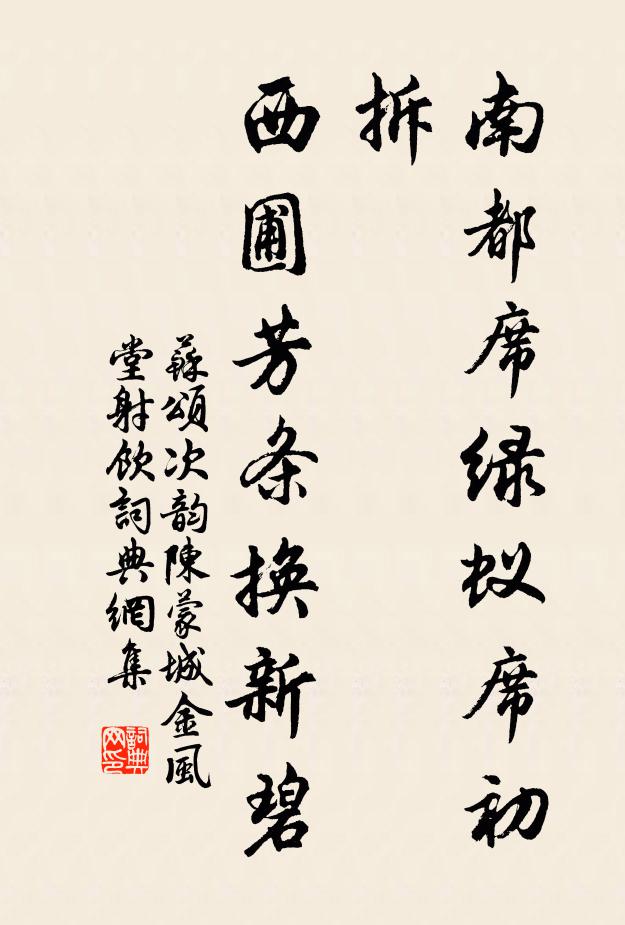 南都席绿蚁席初
拆
西圃芳条换新碧
蘇頌次韵陳蒙城金風
堂射飲詞典網集
詞典网印